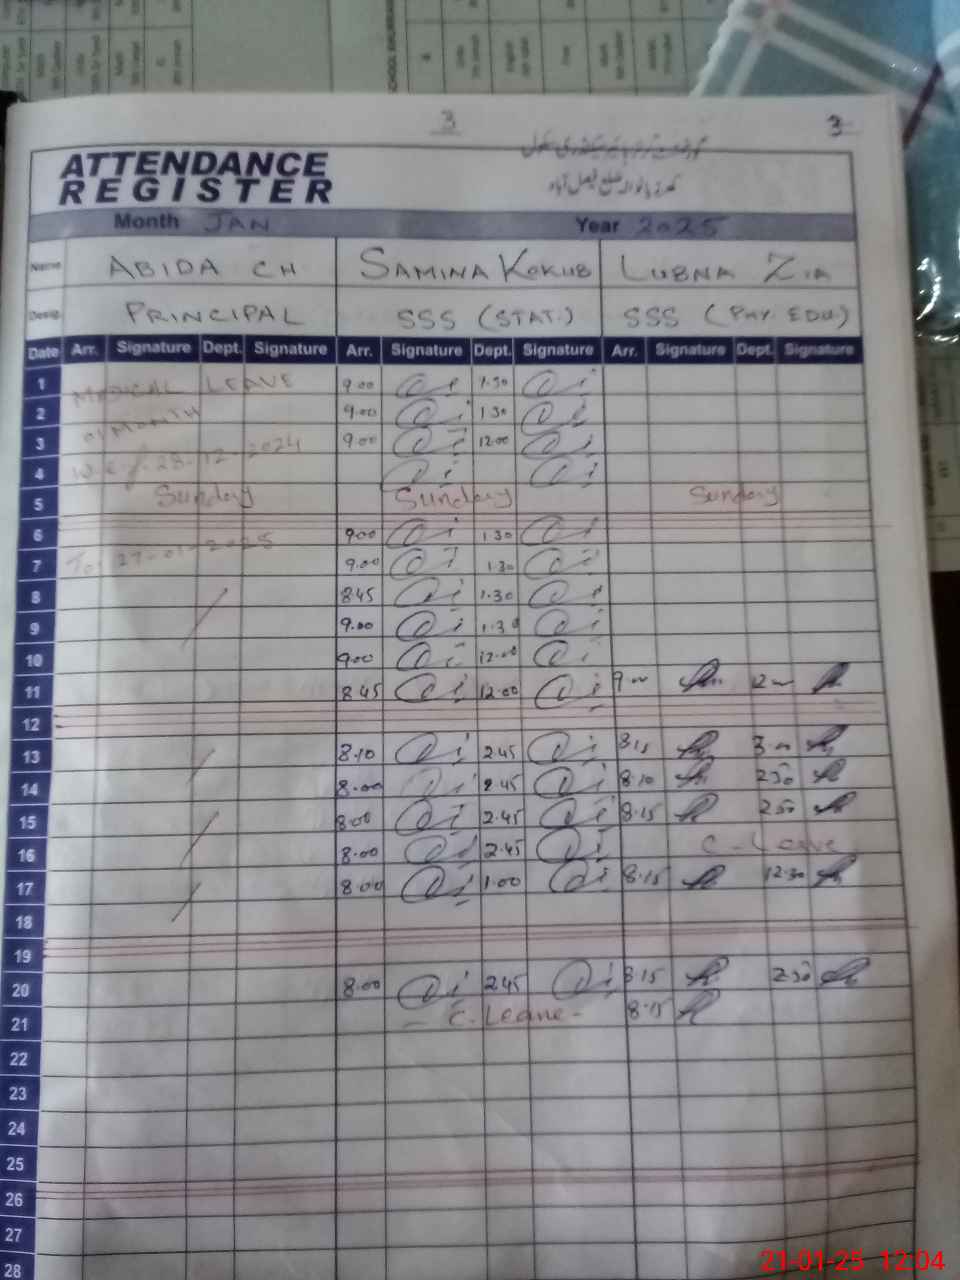 3 3
گورنمنٹ گرلز ہائیر سیکنڈری سکول
ضلع فیصل آباد
ATTENDANCE
REGISTER
Month JAN Year 2025
Name ABIDA CH SAMINA KOKUB LUBNA ZIA
Desig. PRINCIPAL SSS (STAT.) SSS (PHY. EDU)
Date Arr. Signature Dept. Signature Arr. Signature Dept. Signature Arr. Signature Dept. Signature
1 MEDICAL LEAVE 9.00 1.30
2 01 MONTH 9.00 1.30
3 9.00 12.00
4 W.e.f. 28-12-2024
5 Sunday Sunday Sunday
6 9.00 1.30
7 To: 27-01-2025 9.00 1.30
8 8.45 1.30
9 9.00 1.30
10 9.00 12.00
11 8.45 12.00 9.00
12
13 8.10 2.45 8.15 3.00
14 8.00 2.45 8.10 2.50
15 8.00 2.45 8.15 2.50
16 8.00 2.45 C-Leave
17 8.00 1.00 8.15 12.30
18
19
20 8.00 2.45 8.15 2.50
21 - C.Leave- 8.15
22
23
24
25
26
27
28
21-01-25 12:04